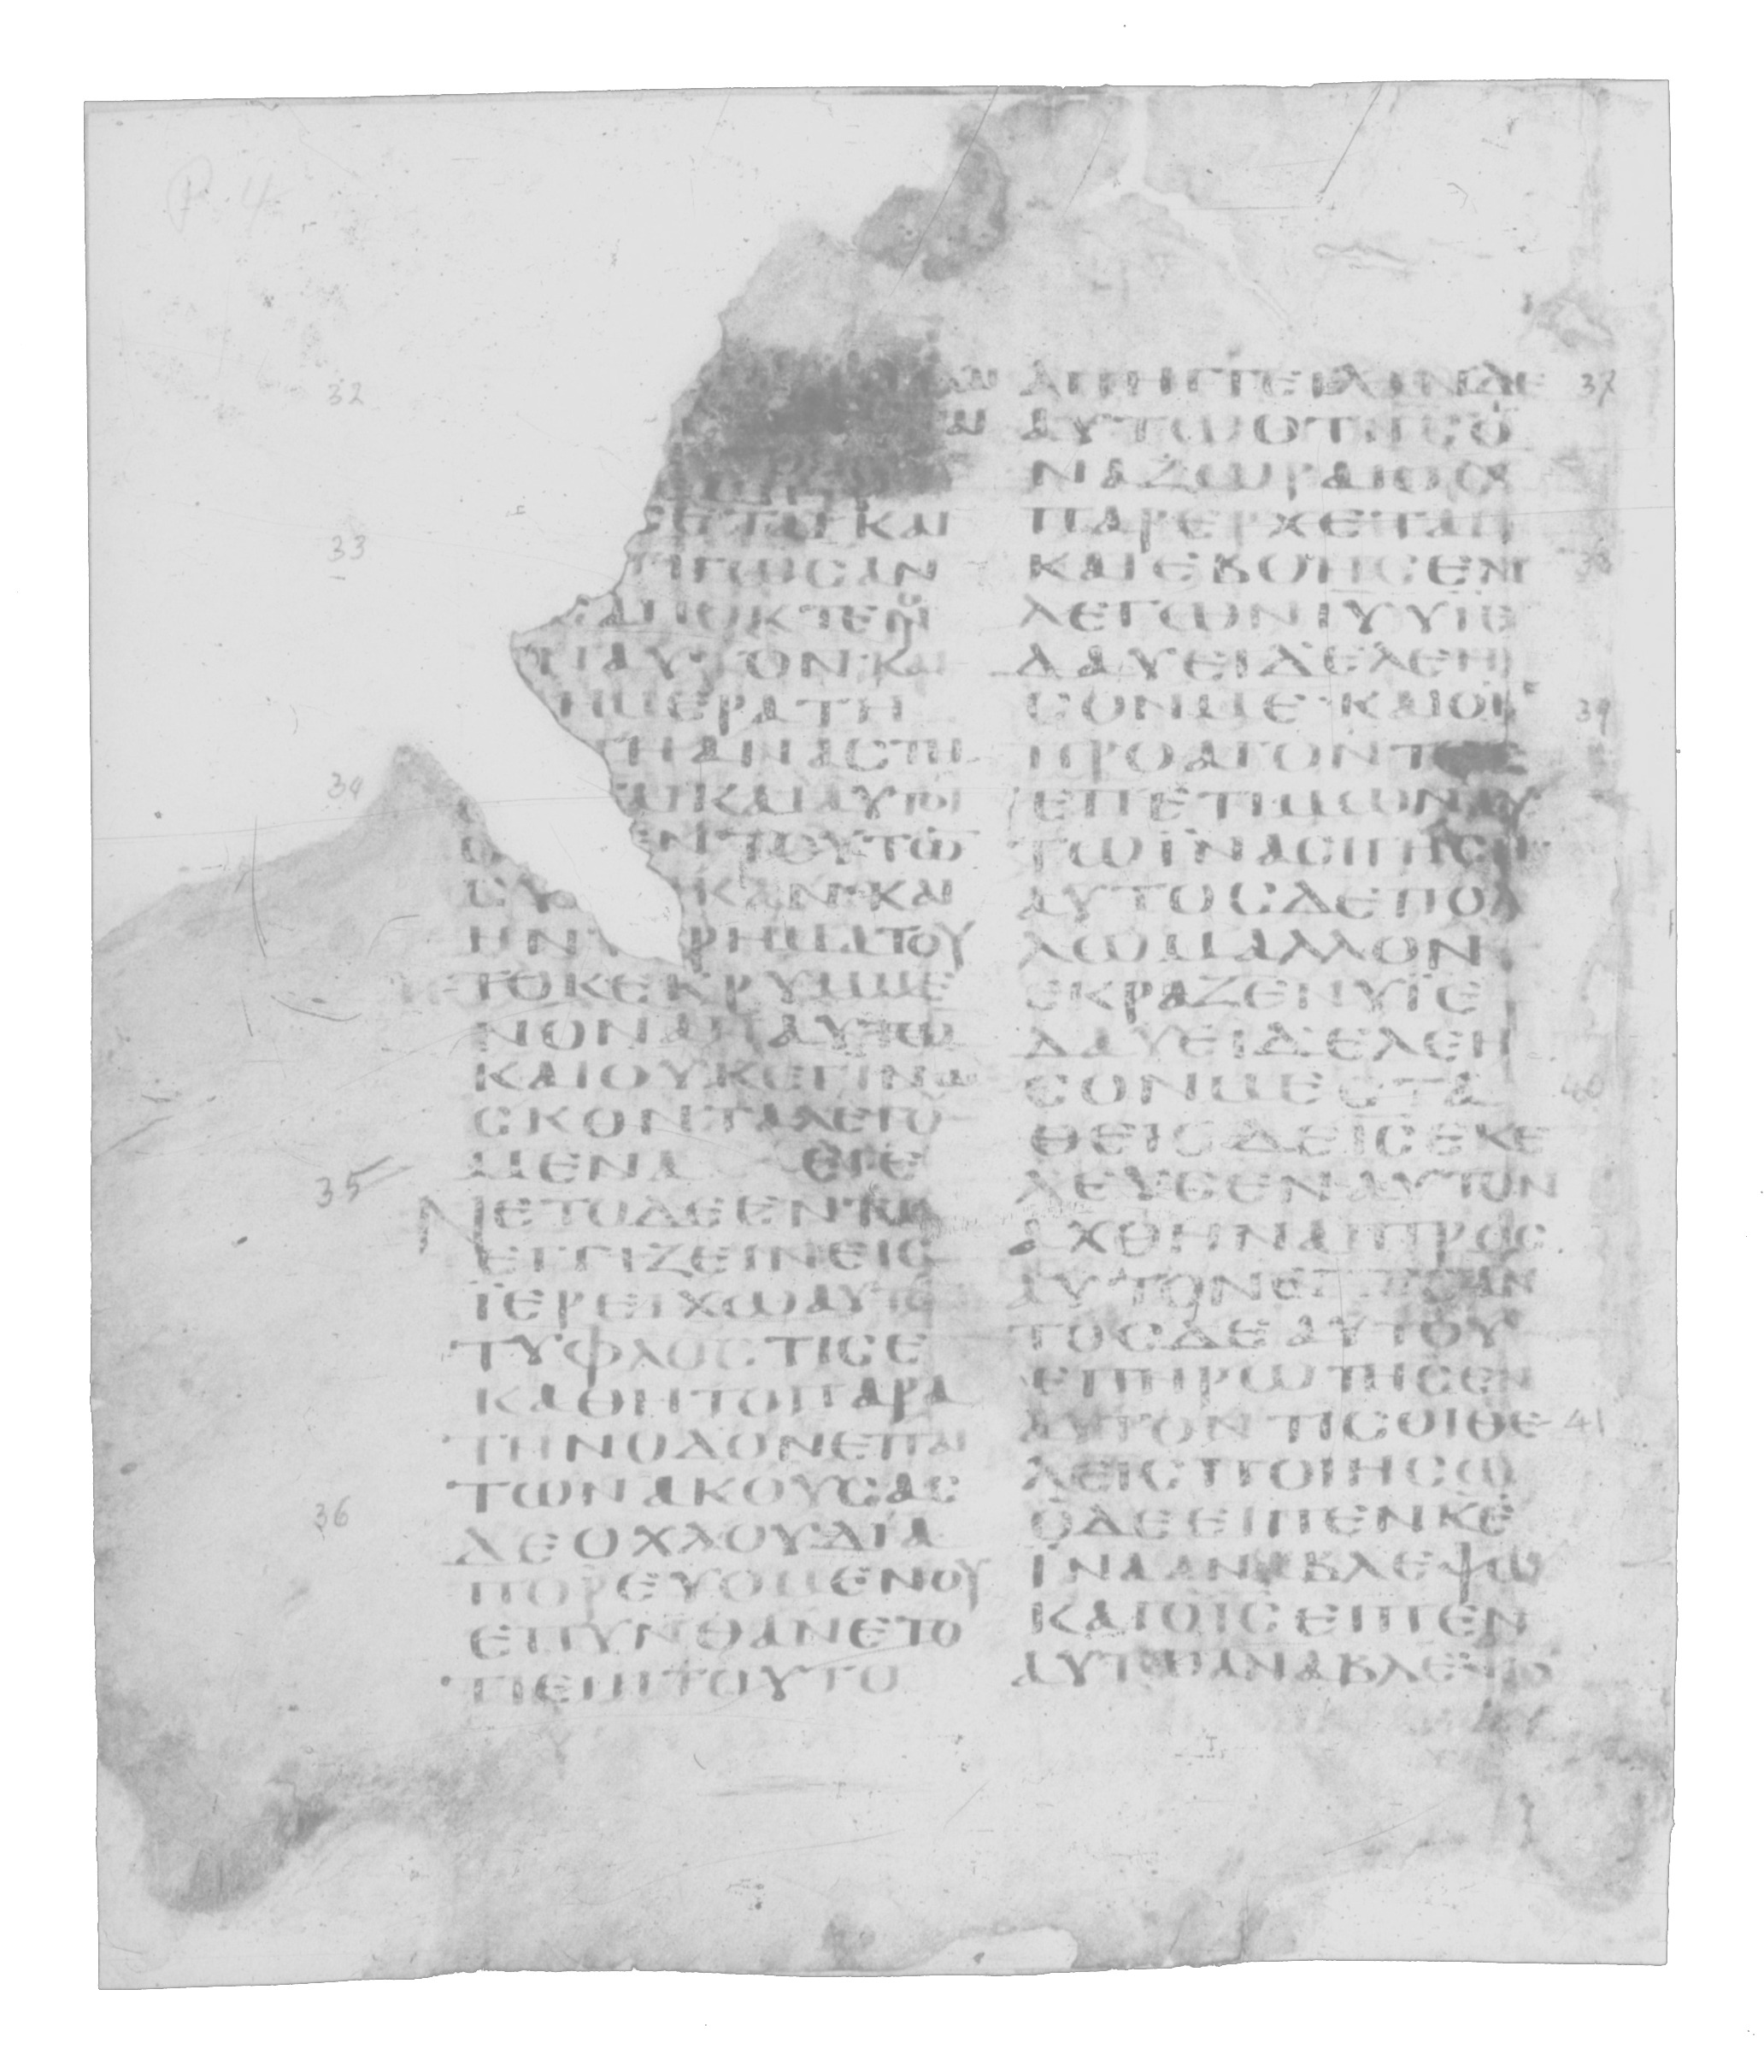 ϹΕΤΑΙ ΚΑΙ
ΓΩϹΑΝ
ΑΠΟΚΤΕΝΟΥ
ΑΥΤΟΝ ΚΑΙ
ΗΜΕΡΑ ΤΗ
ΤΗ ΑΝΑϹΤΗ
ΚΑΙ ΑΥΤΟΙ
ΕΝ ΤΟΥΤΩ̅
ϹΥ ΚΑΝ· ΚΑΙ
ΗΝ Τ ΡΗΜΑ ΤΟΥ
ΤΟ ΚΕΚΡΥΜΜΕ
ΝΟΝ ΑΠ ΑΥΤΩ̅
ΚΑΙ ΟΥΚ ΕΓΙΝΩ
ϹΚΟΝ ΤΑ ΛΕΓΟ
ΜΕΝΑ ΕΓΕ
ΝΕΤΟ ΔΕ ΕΝ ΤΩ
ΕΓΓΙΖΕΙΝ ΕΙϹ
ΪΕΡΕΙΧΩ ΑΥΤΟ̅
ΤΥΦΛΟϹ ΤΙϹ Ε
ΚΑΘΗΤΟ ΠΑΡΑ
ΤΗΝ ΟΔΟΝ ΕΠΑΙ
ΤΩΝ ΑΚΟΥϹΑϹ
ΔΕ ΟΧΛΟΥ ΔΙΑ
ΠΟΡΕΥΟΜΕΝΟΥ
ΕΠΥΝΘΑΝΕΤΟ
ΤΙ ΕΙΗ ΤΟΥΤΟ
ΑΠΗΓΓΕΙΛΑΝ ΔΕ
ΑΥΤΩ ΟΤΙ Ι̅Ϲ̅ Ο
ΝΑΖΩΡΑΙΟϹ
ΠΑΡΕΡΧΕΤΑΙ
ΚΑΙ ΕΒΟΗϹΕΝ
ΛΕΓΩΝ Ι̅Υ̅ ΥΪΕ
ΔΑΥΕΙΔ ΕΛΕΗ
ϹΟΝ ΜΕ· ΚΑΙ ΟΙ
ΠΡΟΑΓΟΝΤΕϹ
ΕΠΕΤΙΜΩΝ ΑΥ
ΤΩ ΪΝΑ ϹΙΓΗϹΗ
ΑΥΤΟϹ ΔΕ ΠΟΛ
ΛΩ ΜΑΛΛΟΝ
ΕΚΡΑΖΕΝ ΥΪΕ
ΔΑΥΕΙΔ ΕΛΕΗ
ϹΟΝ ΜΕ ϹΤΑ
ΘΕΙϹ ΔΕ Ι̅Ϲ̅ ΕΚΕ
ΛΕΥϹΕΝ ΑΥΤΟΝ
ΑΧΘΗΝΑΙ ΠΡΟϹ
ΑΥΤΟΝ ΕΓΓΙϹΑΝ
ΤΟϹ ΔΕ ΑΥΤΟΥ
ΕΠΗΡΩΤΗϹΕΝ
ΑΥΤΟΝ ΤΙ ϹΟΙ ΘΕ
ΛΕΙϹ ΠΟΙΗϹΩ
Ο ΔΕ ΕΙΠΕΝ Κ̅Ε̅
ΪΝΑ ΑΝΑΒΛΕΨΩ
ΚΑΙ Ο Ι̅Ϲ̅ ΕΙΠΕΝ
ΑΥΤΩ ΑΝΑΒΛΕΨΟ̅
32
33
34
35
36
37
38
39
40
41